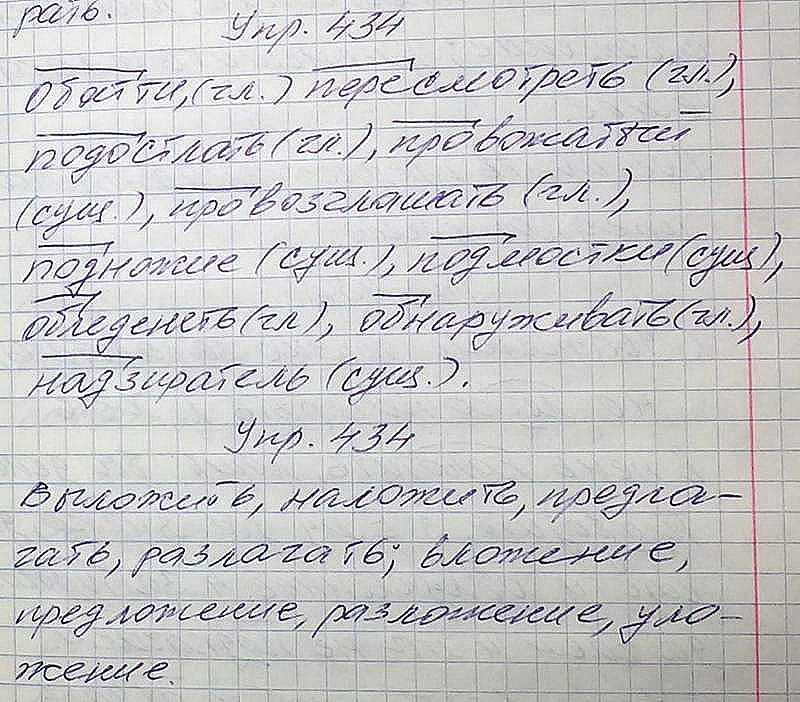 рать.
Упр. 434
Обойти, (гл.) пересмотреть (гл.),
подостлать (гл.), провожатый
(сущ.), провозглашать (гл.),
подножие (сущ.), подмостки (сущ),
обледенеть (гл), обнаруживать (гл.),
надзиратель (сущ.).
Упр. 434
Выложить, наложить, предла-
гать, разлагать; вложение,
предложение, разложение, уло-
жение.